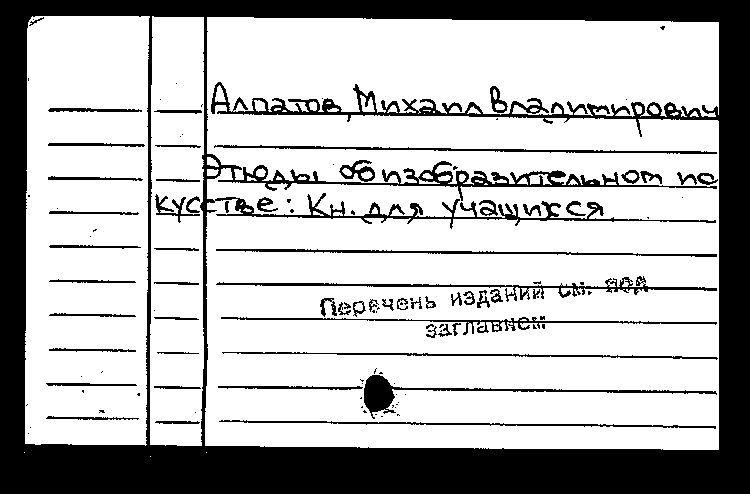 Алпатов, Михаил Владимирович
Этюды об изобразительном ис
кусстве: Кн. для учащихся
Перечень изданий см. под
заглавием